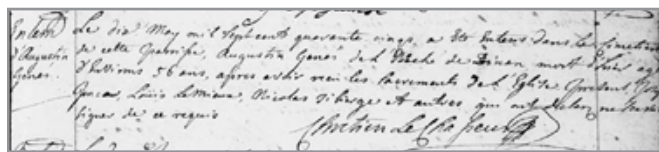 Enterm
d'Augustin
Genes.
Le dix May mil sept cent quarante cinq, a Ete Enteré dans Le Cimetiere
de cette Paroisse, Augustin Genes de L'Eveché de Dinan mort d'hier agé
d'Environ 56 ans, apres avoir recu les Sacrements de L'Eglise presents,
Louis Lemieux, Nicolas Siberge et autres qui ont declaré ne
signer de ce requis
Chretien Le Chasseur